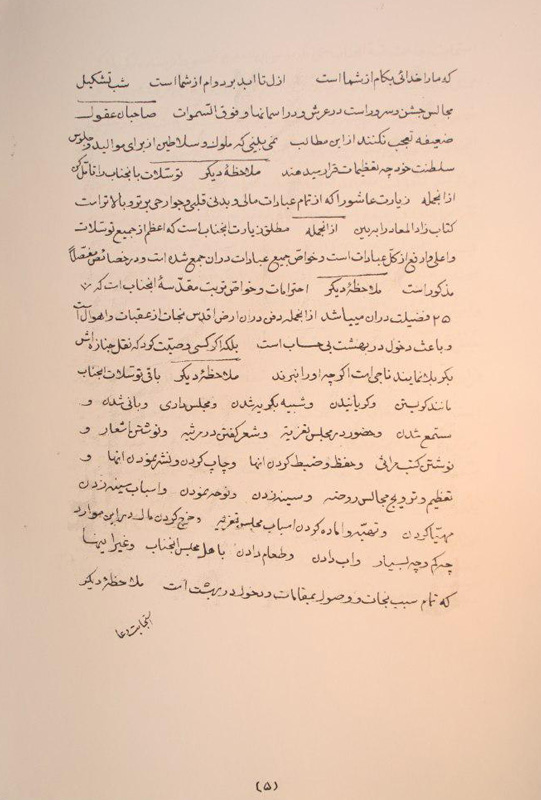 که ما را خدائی بکام از شما است ازل تا ابد بر دوام از شما است شب تشکیل
مجالس جشن و سرور است در عرش و در اسمانها و فوق السموات صاحبان عقول
ضعیفه تعجب نکنند از این مطالب نمی بینی که ملوک و سلاطین از برای موالید و جلوس
سلطنت خود چه تعظیمات قرار میدهند ملاحظهٔ دیگر توسلات بانجناب را تأمل کن
از انجمله زیارت عاشورا که از تمام عبادات مالی و بدنی قلبی و جوارحی برتر و بالاتر است
کتاب زاد المعاد را به بین از انجمله مطلق زیارت انجناب است که اعظم از جمیع توسلات
و اعلی و ارفع از کل عبادات است و خواص جمیع عبادات در ان جمع شده است و در خصائص مفصلاً
مذکور است ملاحظهٔ دیگر احترامات و خواص تربت مقدسهٔ انجناب است که
۲۵ فضیلت در ان میباشد از انجمله دفن در ان ارض اقدس نجات از عقبات و اهوال است
و باعث دخول در بهشت بی حساب است بلکه اگر کسی وصیت کرد که نقل جنازه اش
بکربلا نمایند ناجی است اگر چه او را نبرند ملاحظهٔ دیگر باقی توسلات انجناب
مانند گریستن و گریانیدن و شبیه بگریه شدن و مجلس داری و بانی شدن و
مستمع شدن و حضور در مجلس تعزیه و شعر گفتن در مرثیه و نوشتن اشعار و
نوشتن کتب مراثی و حفظ و ضبط کردن انها و چاپ کردن و نشر نمودن انها و
تعظیم و ترویج مجالس روضه و سینه زدن و نوحه نمودن و اسباب سینه زدن
مهیا کردن و تهیه و اماده کردن اسباب مجلس تعزیه و خرج کردن مال در این موارد
چه کم و چه بسیار و اب دادن و طعام دادن باهل مجلس انجناب و غیر اینها
که تمام سبب نجات و وصول بمقامات و دخول در بهشت است ملاحظهٔ دیگر
استجابت دعا
(۵)